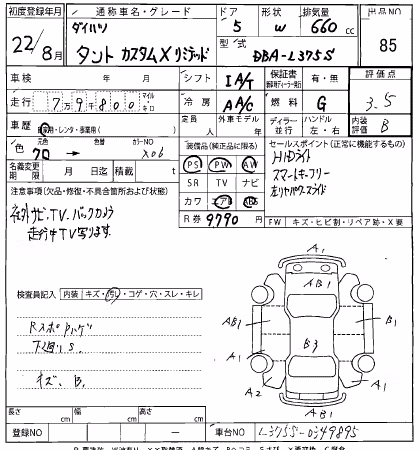 初度登録年月 通称車名・グレード ドア 形状 排気量 出品番号
ダイハツ 5 W 660 cc
22年/8月 タント カスタムX リミテッド 85
型式 DBA-L375S
車検 年 月 シフト IA/T 保証書 有・無 評価点
走行 7万9千800 マイル キロ 冷房 A/C 燃料 G 3.5
定員 人 外車モデル 年 ディーラー 並行 ハンドル 左・右 内装評価 B
車歴 自家用・レンタ・事業用( )
色 元色 クロ → 色替 カラーNO X06
装備品(純正品に限る)
PS PW AW
SR TV ナビ
カワ エアB ABS
セールスポイント(正常に機能するもの)
HIDライト
スマートキーフリー
左リヤパワースライド
名義変更期限 月 日迄 積載 t
R券 9,790
FW キズ・ヒビ割・リペア跡・X要
注意事項(欠品・修復・不具合箇所および状態)
社外ナビ、TV、バックカメラ
走行中TV写ります。
検査員記入 内装 キズ・汚レ・コゲ・穴・スレ・キレ
下廻りS.
キズ、B.
A1
AB1
AB1
A1
B3
A1
A2
A1
AB1
長さ cm 幅 cm 高さ cm
登録NO ― 車台NO L375S-0349895